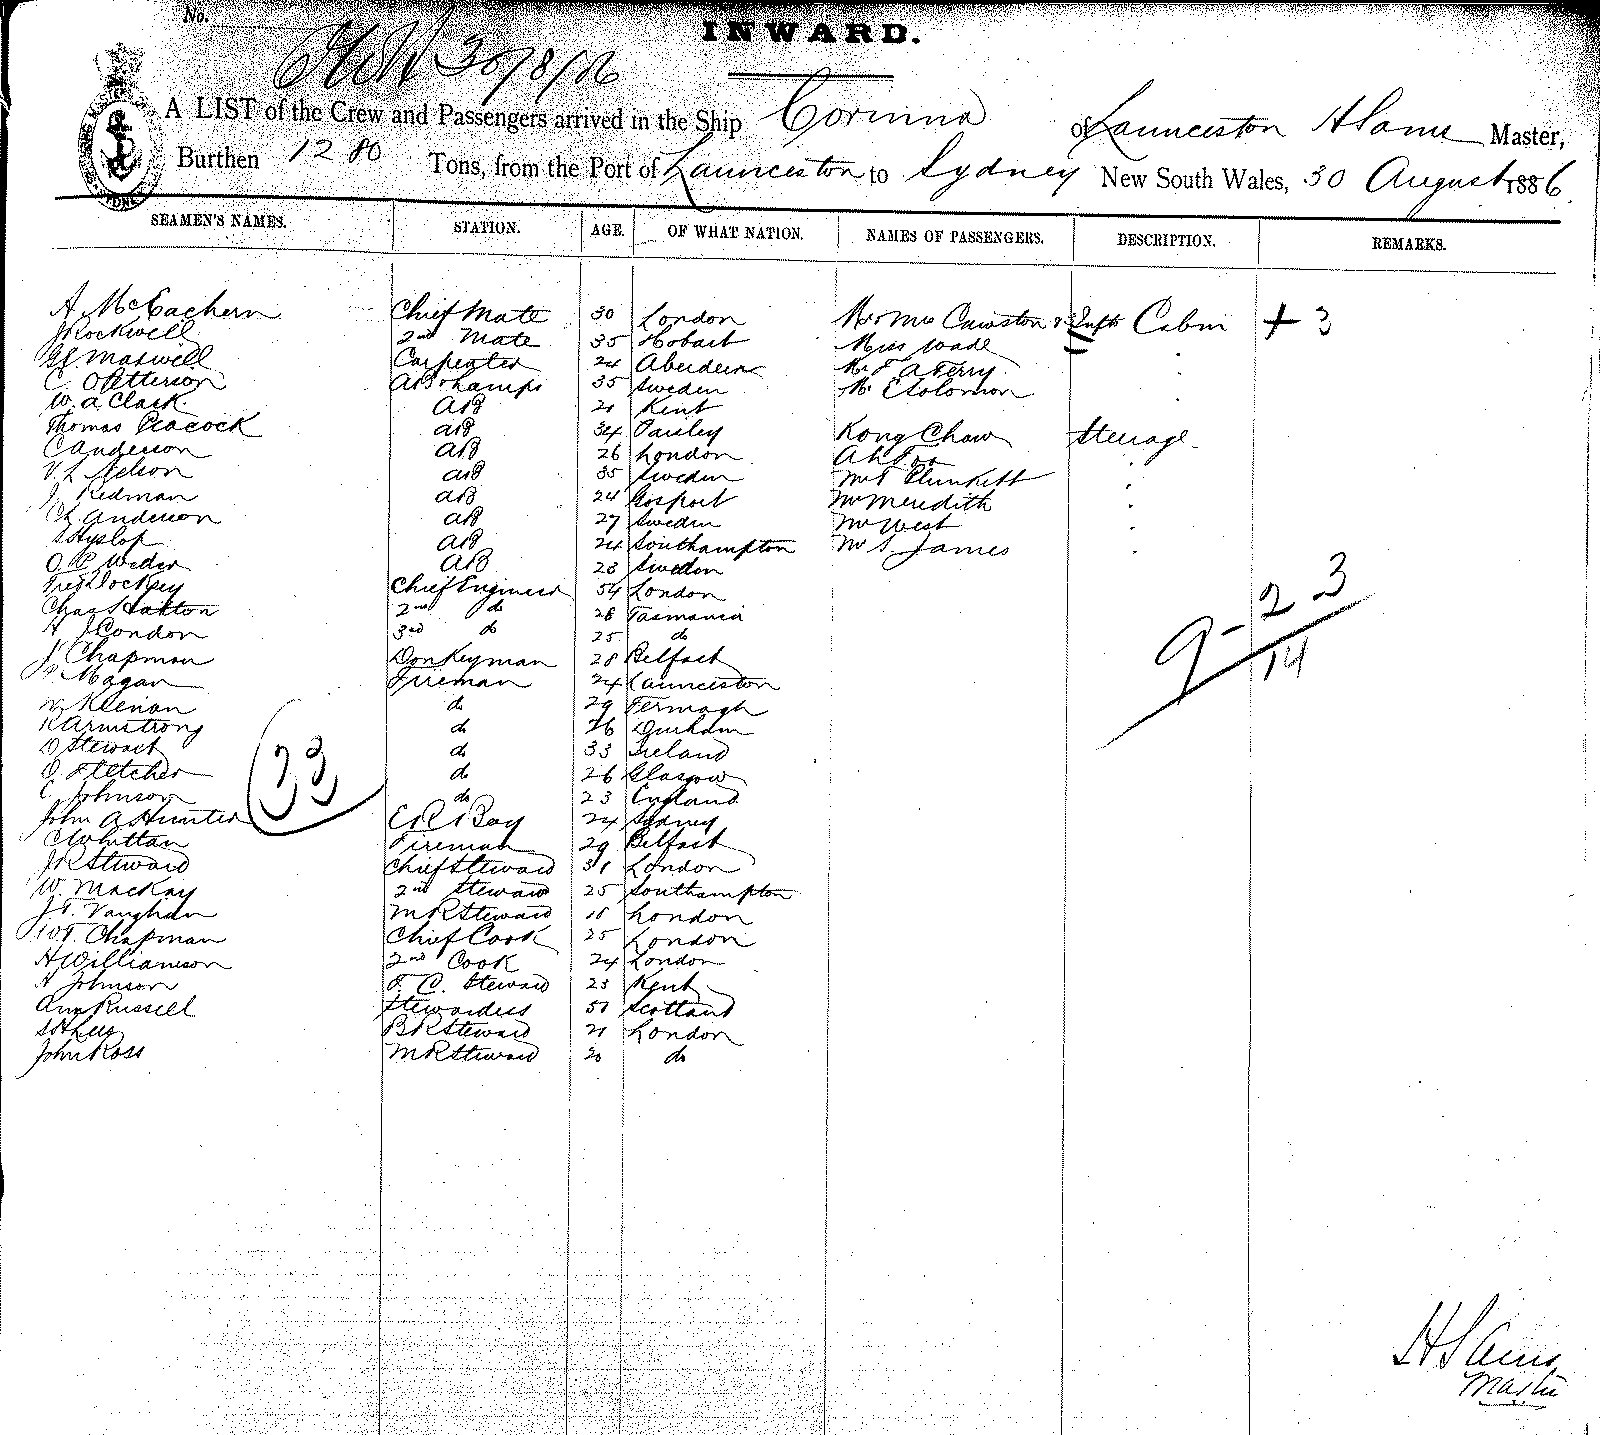 No.
INWARD.
30/8/86
A LIST of the Crew and Passengers arrived in the Ship Corinna of Launceston Master,
Burthen 1280 Tons, from the Port of Launceston to Sydney New South Wales, 30 August 1886.
SEAMEN'S NAMES. STATION. AGE. OF WHAT NATION. NAMES OF PASSENGERS. DESCRIPTION. REMARKS.
A McEachern Chief Mate 30 London Mr & Mrs Cawston & Cabin + 3
J Rockwell 2nd Mate 35 Hobart Miss Wade
Maxwell Carpenter 24 Aberdeen Mr F A Ferry
C. O Petterson AB 35 Sweden Mr E Solomon
W. A Clark AB 21 Kent
Thomas Peacock AB 34 Paisley Kong Chaw Steerage
C Anderson AB 26 London Ah
Nelson AB 35 Sweden Plunkett
J. Redman AB 24 Gosport Mr Meredith
Ch. Anderson AB 27 Sweden Mr West
Hyslop AB 24 Southampton Mr S James
AB 23 Sweden
Chief Engineer 54 London
Chas 2nd do 26 Tasmania
Condon 3rd do 25 do
J. Chapman Donkeyman 28 Belfast
Magan Fireman 24 Launceston
W Keenan do 29 Fermagh
R Armstrong do 26 Durham
D Stewart do 33 Ireland
D. Fletcher do 26 Glasgow
C. Johnson do 23 England
John A Hunter ER Boy 24 Sydney
C Whittan Fireman 29 Belfast
J R Steward Chief Steward 31 London
W. MacKay 2nd Steward 25 Southampton
J. T. Vaughan M R Steward London
W. T. Chapman Chief Cook 25 London
H Williamson 2nd Cook 24 London
A Johnson F. C. Steward 23 Kent
Ann Russell Stewardess Scotland
B R Steward 21 London
John Ross M R Steward 20 do
33
9 - 23
14
Master